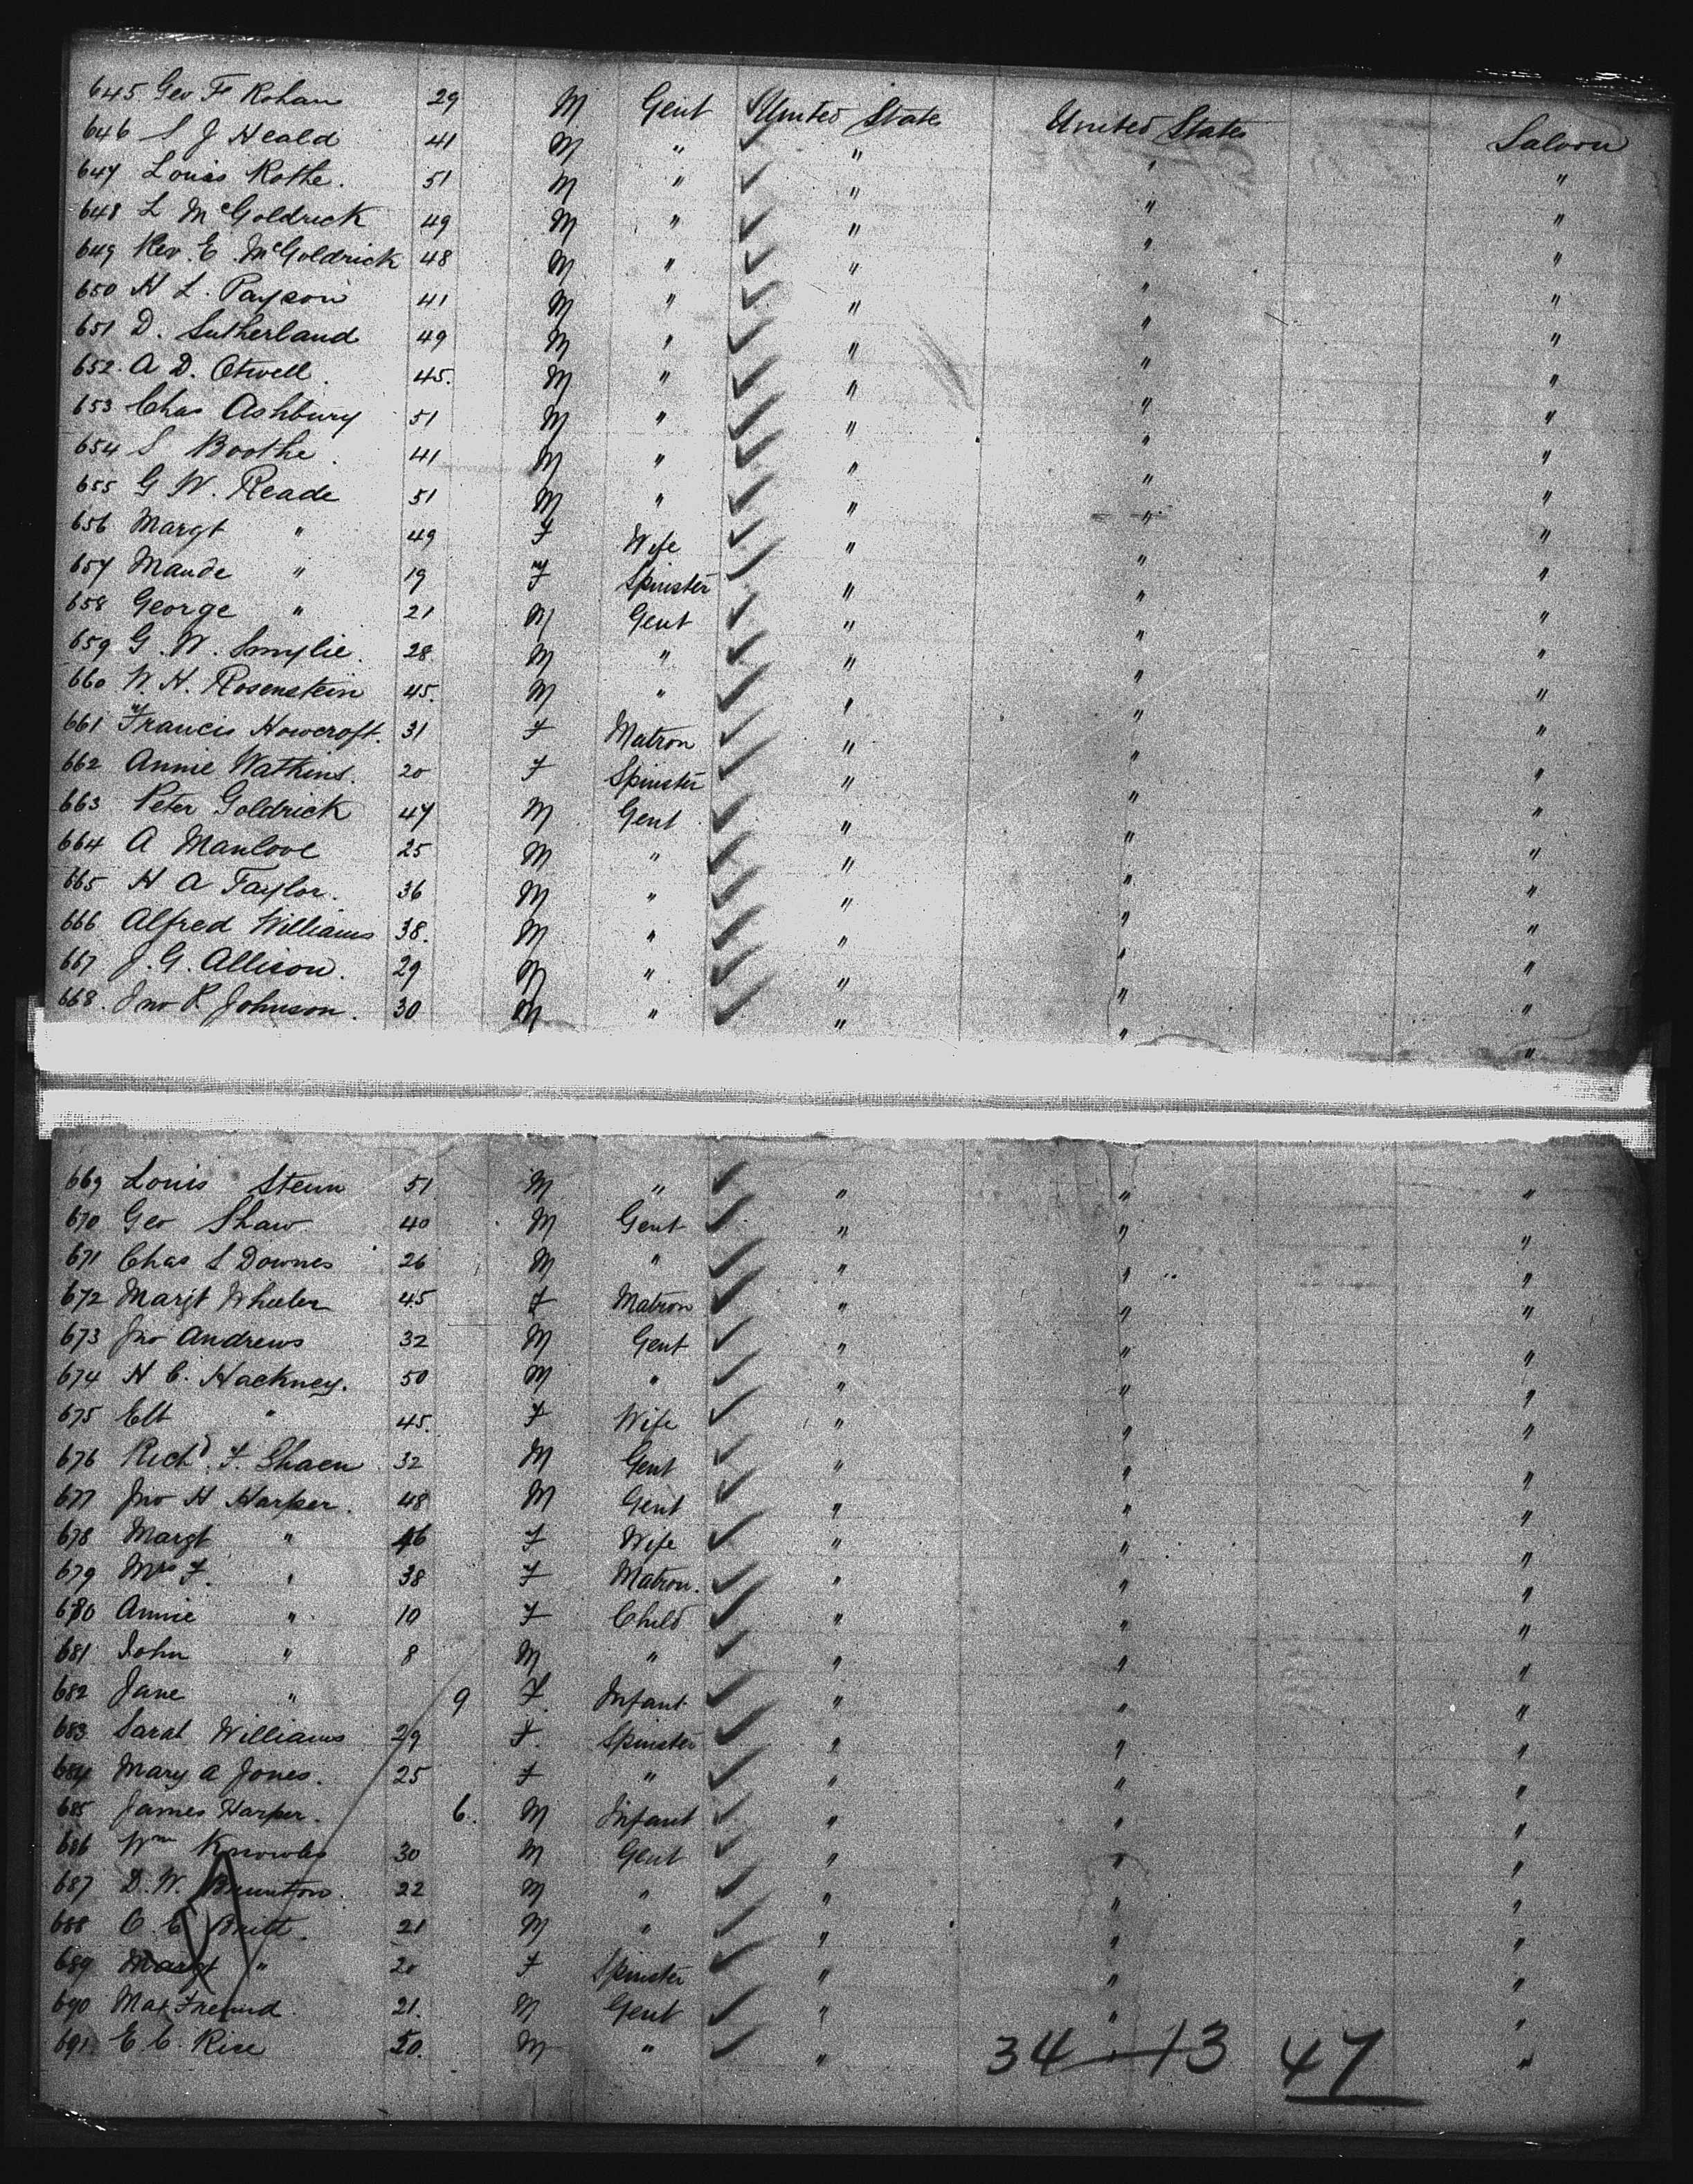 645 Geo F Rohan 29 M Gent United State United States Saloon
646 S J Heald 41 M " " " "
647 Louis Rothe. 51 M " " " "
648 L McGoldrick 49 M " " " "
649 Rev. E. McGoldrick 48 M " " " "
650 H L. Payson 41 M " " " "
651 D. Sutherland 49 M " " " "
652. A D. Otwell. 45. M " " " "
653 Chas Ashbury 51 M " " " "
654 S Boothe. 41 M " " " "
655 G W. Reade 51 M " " " "
656 Margt " 49 F Wife " " "
657 Maude " 19 F Spinster " " "
658 George " 21 M Gent " " "
659 G. W. Smylie. 28 M " " " "
660 W. H. Rosenstein 45. M " " " "
661 Francis Howcroft. 31 F Matron " " "
662 Annie Watkins. 20 F Spinster " " "
663 Peter Goldrick 47 M Gent " " "
664 A Manlove 25 M " " " "
665 H A Taylor. 36 M " " " "
666 Alfred Williams 38. M " " " "
667 J. G. Allison. 29 M " " " "
668. Jno R. Johnson. 30 M " " " "
669 Louis Steun 51 M " " " "
670 Geo Shaw 40 M Gent " " "
671 Chas S Downes 26 M " " " "
672 Margt Wheeler 45 F Matron " " "
673 Jno Andrews 32 M Gent " " "
674 H C. Hackney. 50 M " " " "
675 Elt " 45. F Wife " " "
676 Richd. F. Shaen 32 M Gent " " "
677 Jno H Harper. 48 M Gent " " "
678 Margt " 46 F Wife " " "
679 Mrs F. " 38 F Matron. " " "
680 Annie " 10 F Child " " "
681 John " 8 M " " " "
682 Jane " 9 F. Infant " " "
683 Sarah Williams 29 F. Spinster " " "
684 Mary A Jones. 25 F " " " "
685 James Harper. 6. M Infant " " "
686 Wm Knowles 30 M Gent " " "
687 D. W. Brunton. 22 M " " " "
688 O. C. Britt. 21 M " " " "
689 Margt " 20 F Spinster " " "
690 Max Freund 21. M Gent " " "
691 E. C. Rice 50. M " " "
34 13 47